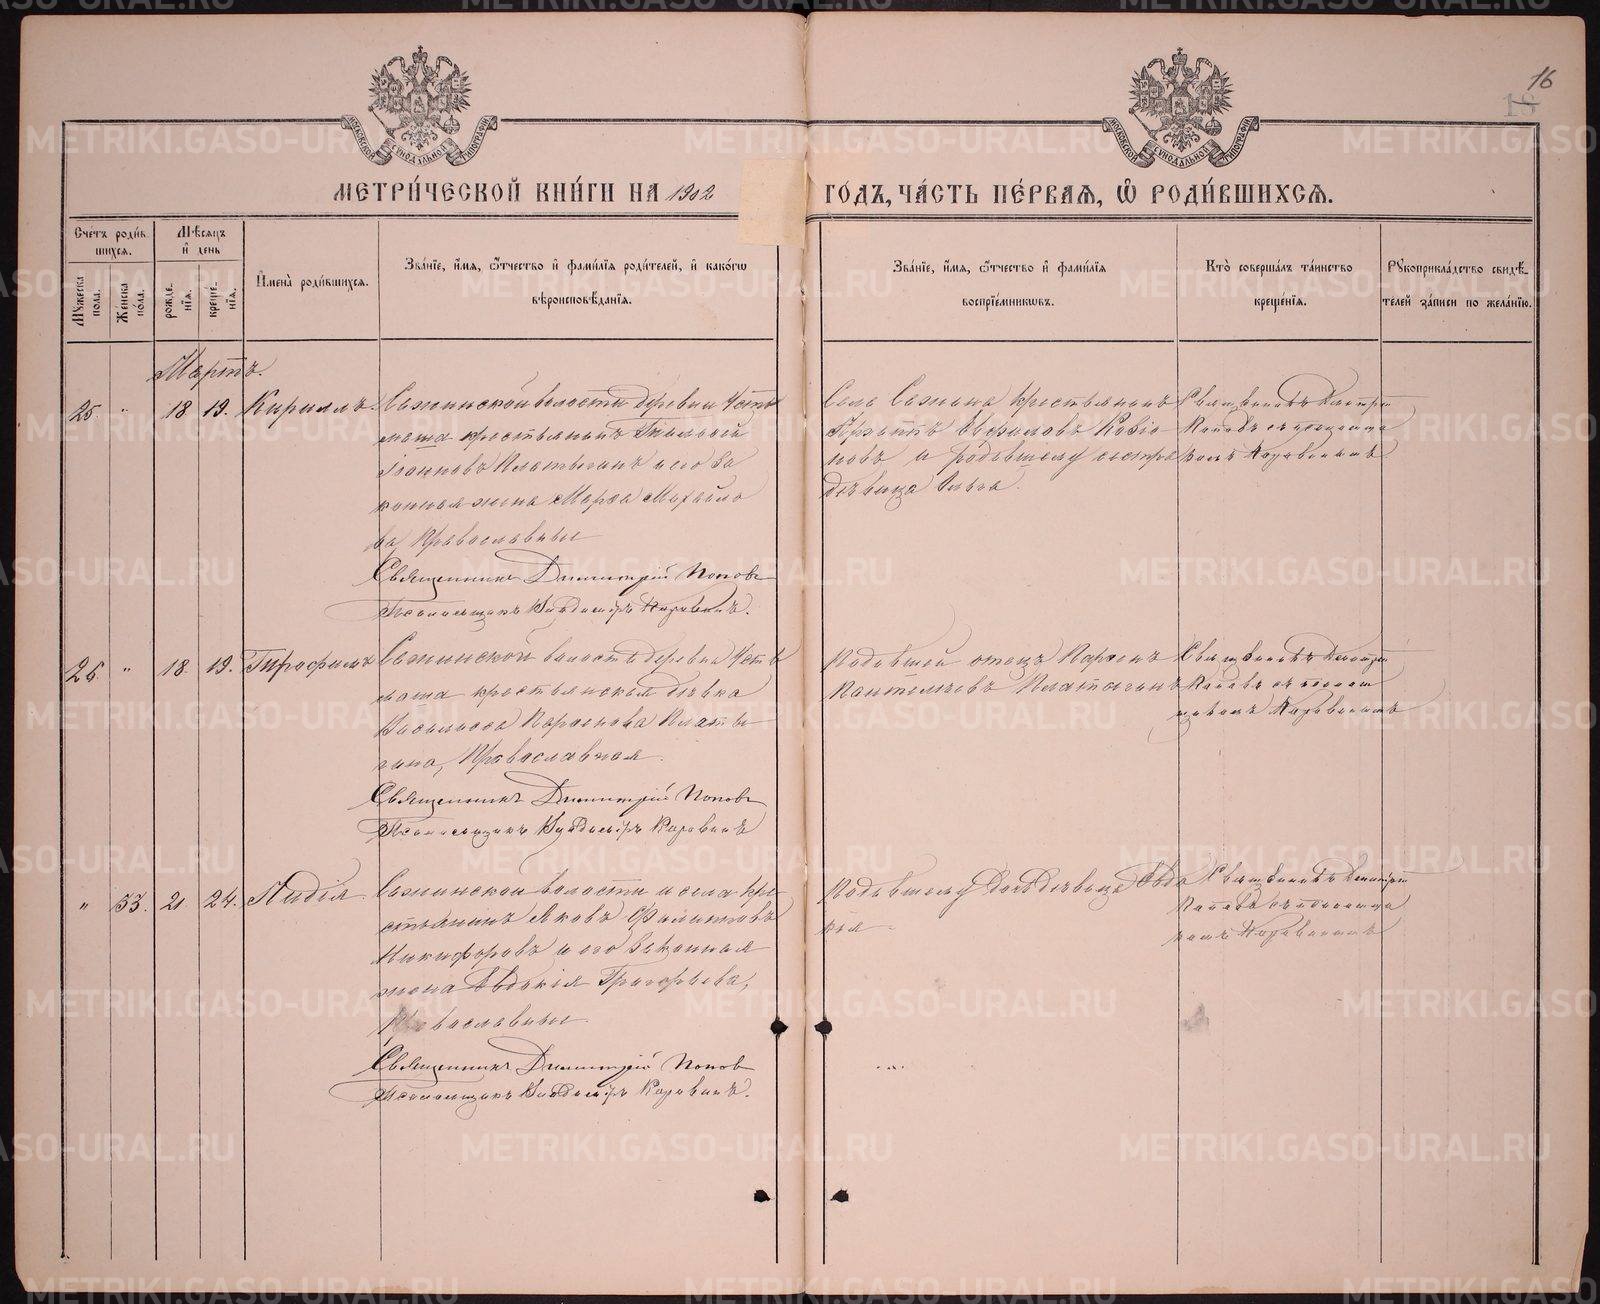 16
МОСКОВСКОЙ СѴНОДАЛЬНОЙ ТИПОГРАФІИ
МОСКОВСКОЙ СѴНОДАЛЬНОЙ ТИПОГРАФІИ
МЕТРИ́ЧЕСКОЙ КНИ́ГИ НА 1902 ГО́ДЪ, ЧА́СТЬ ПЕ́РВАѦ, Ѡ҆ РОДИ́ВШИХСѦ.
Сче́тъ роди́в-
шихсѧ.
Мѣ́сѧцъ
и҆ день
Мꙋжеска
пола.
Женска
по́ла.
рожде-
нїѧ.
креще-
нїѧ.
И҆мена̀ роди́вшихсѧ.
Зва́нїе, и҆́мѧ, ѻ҆́тчество и҆ фами́лїѧ роди́телей, и҆ како́гѡ
вѣроисповѣ́данїѧ.
Зва́нїе, и҆́мѧ, ѻ҆́тчество и҆ фами́лїѧ
воспрїе́мникѡвъ.
Кто̀ соверша́лъ та́инство
креще́нїѧ.
Рꙋкоприкла́дство свидѣ́-
телей за́писи по жела́нїю.
Мартъ.
25. " 18 19. Кириллъ
Сажинской волости деревни Усть
маша крестьянинъ
Іоанновъ Платыгинъ и его за
конная жена Марѳа Михайло
ва, Православные
Священникъ Димитрій Поповъ
Псаломщикъ Владиміръ Коровинъ.
Села Сажина крестьянинъ
и родившему сестра
дѣвица Ольга.
Священникъ Димитрій
Поповъ съ псаломщи
комъ Коровинымъ
26. " 18. 19. Трофимъ
Сажинской волости деревни Усть
маша крестьянская дѣвка
Василисса Парѳенова Платы
гина, Православная.
Священникъ Димитрій Поповъ
Псаломщикъ Владиміръ Коровинъ
Родившей отецъ Парѳенъ
Пантелѣевъ Платыгинъ
Священникъ Димитрій
Поповъ съ псалом
щикомъ Коровинымъ
" 53. 21 24. Лидія.
Сажинской волости и села кре-
стьянинъ Яковъ Филипповъ
Никифоровъ и его законная
жена Евдокія Григорьева,
Православные.
Священникъ Димитрій Поповъ
Псаломщикъ Владиміръ Коровинъ.
Родившему дочь дѣвица Евдо
кія
Священникъ Димитрій
Поповъ съ псаломщи
комъ Коровинымъ
METRIKI.GASO-URAL.RU